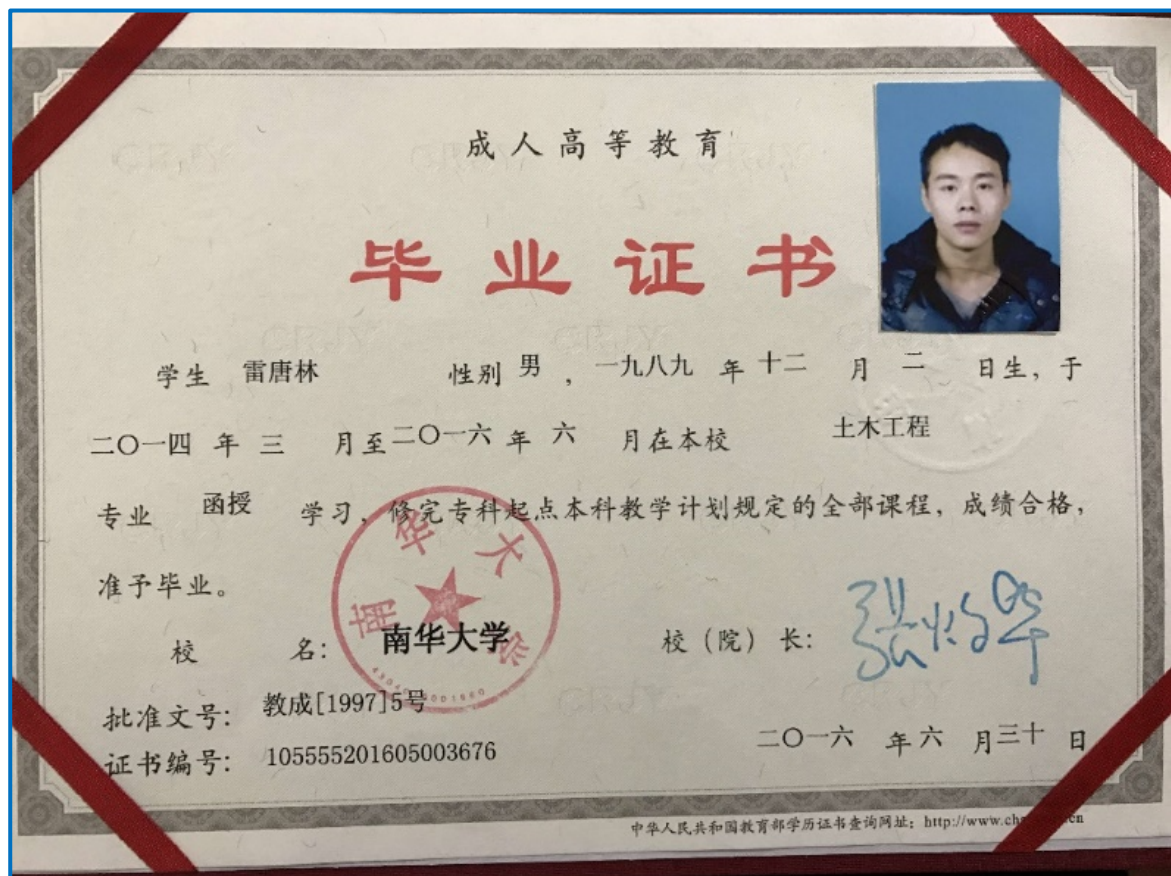 成人高等教育
毕业证书
学生 雷唐林 性别 男 ，一九八九 年 十二 月 二 日生，于
二〇一四 年 三 月至 二〇一六 年 六 月在本校 土木工程
专业 函授 学习，修完专科起点本科教学计划规定的全部课程，成绩合格，
准予毕业。
校 名： 南华大学 校（院）长：
批准文号： 教成[1997]5号
证书编号： 105555201605003676
二〇一六 年 六 月 三十 日
中华人民共和国教育部学历证书查询网址：http://www.ch
南华大学
CRJY